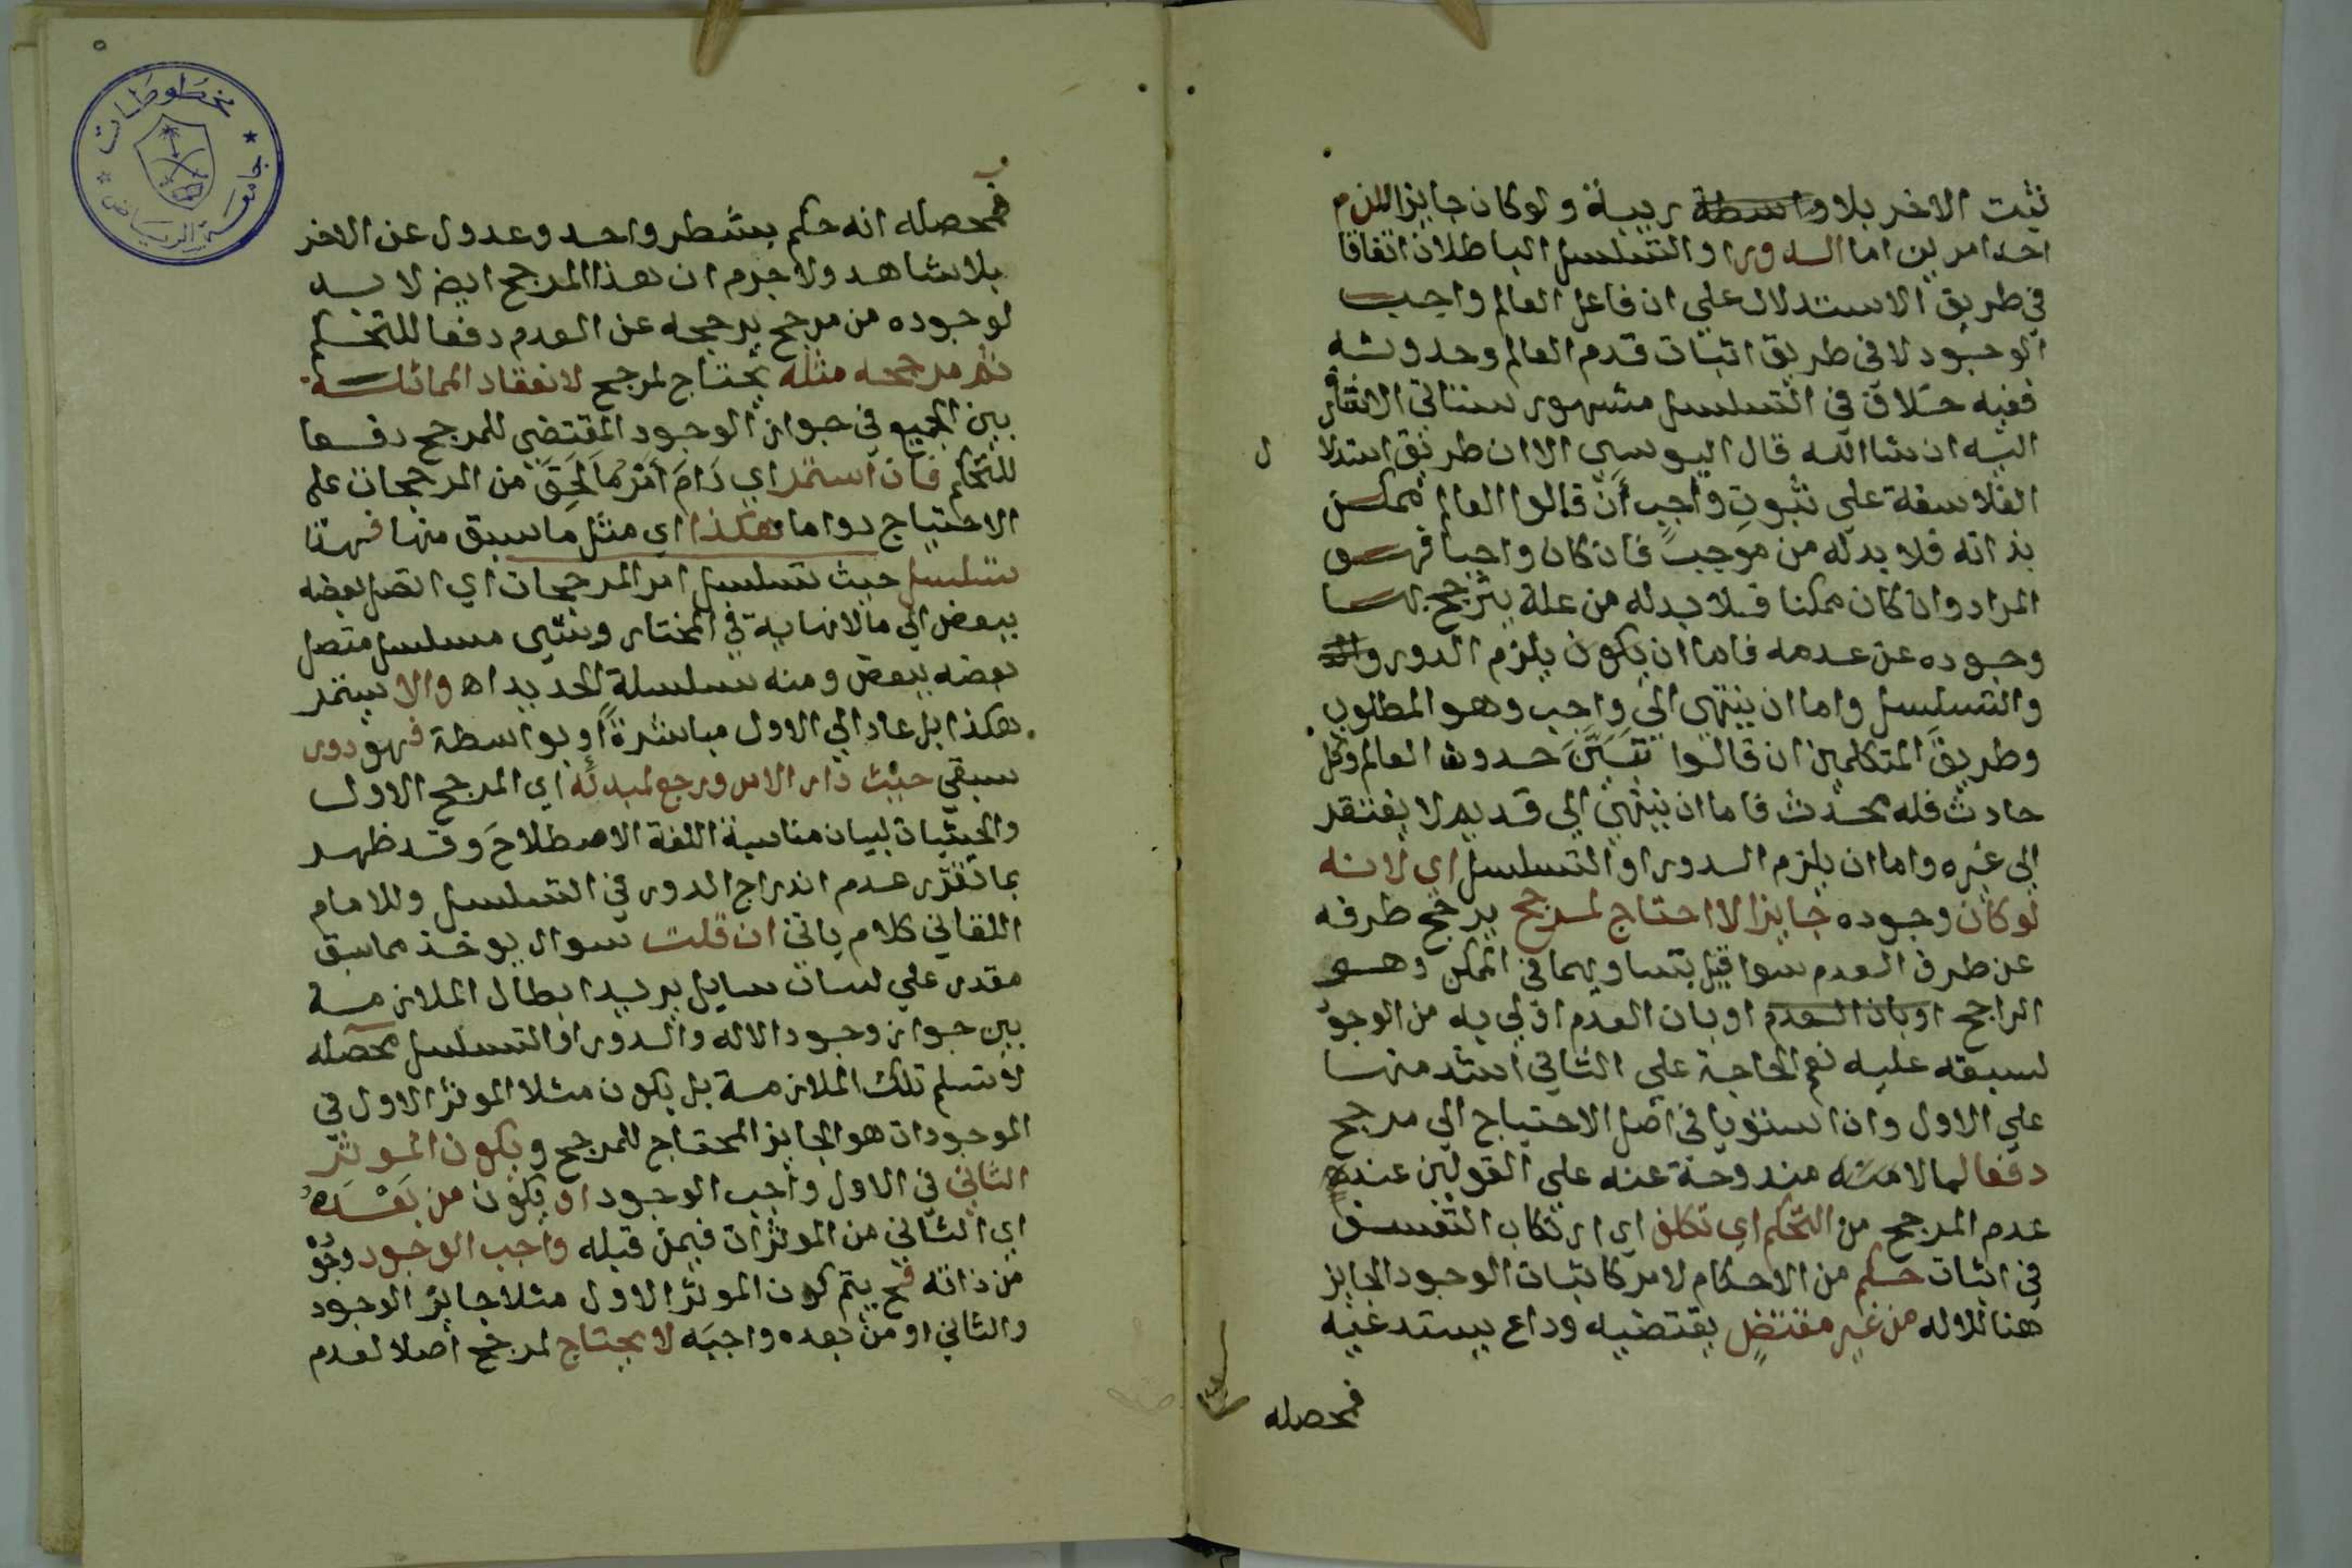 ثبت الاخر بلا واسطة ريبة ولو كان جايزا للزم
احد امرين اما الدور او التسلسل الباطلان اتفاقا
في طريق الاستدلال علي ان فاعل العالم واجب
الوجود لا في طريق اثبات قدم العالم وحدوثه
ففيه خلاف في التسلسل مشهور ستاتي الاشارة
اليه ان شا الله قال اليوسي الا ان طريق استدلا
ل
الفلاسفة علي ثبوت واجب أن قالوا العالم ممكن
بذاته فلا بد له من موجب فان كان واجبا فهو
المراد وان كان ممكنا فلا بد له من علة يترجح بها
وجوده عن عدمه فاما ان يكون يلزم الدور
والتسلسل واما ان ينتهي الي واجب وهو المطلوب
وطريق المتكلمين ان قالوا تبين حدوث العالم وكل
حادث فله محدث فاما ان ينتهي الي قديم لا يفتقر
الي غيره واما ان يلزم الدور او التسلسل اي لانه
لو كان وجوده جايزا لاحتاج لمرجح يرجح طرفه
عن طرف العدم سوا قيل بتساويهما في الممكن وهو
الراجح او بان العدم او بان العدم اولي به من الوجود
لسبقه عليه نعم الحاجة علي الثاني اشد منها
علي الاول وان استويا في اصل الاحتياج الي مرجح
دفعا لما لا مندوحة عنه علي القولين عند
عدم المرجح من التحكم اي تكلف اي ارتكاب التعسف
في اثبات حكم من الاحكام لامر كاثبات الوجود الجايز
هنا للاله من غير مقتض يقتضيه وداع يستدعيه
فمحصله
٥
مخطوطات
جامعة الرياض
فمحصله انه حكم بشطر واحد وعدول عن الاخر
بلا شاهد ولا جرم ان هذا المرجح ايض لا بد
لوجوده من مرجح يرجحه عن العدم دفعا للتحكم
ثم مرجحه مثله يحتاج لمرجح لانعقاد المماثلة
بين الجميع في جواز الوجود المقتضي للمرجح دفعا
للتحكم فان استمر اي دَامَ أمْرُ مَا لَحِقَ من المرجحات علي
الاحتياج دواما هكذا اي مثل ما سبق منها فهذا
تسلسل حيث تسلسل امر المرجحات اي اتصل بعضه
ببعض الي مالا نهاية في المختار وشي مسلسل متصل
بعضه ببعض ومنه سلسلة الحديد اه والا يستمر
هكذا بل عاد الي الاول مباشرةً أو بواسطة فهو دور
سبقي حيث دار الامر ورجع لمبدئه اي المرجح الاول
والحيثيات لبيان مناسبة اللغة الاصطلاح وقد ظهر
بما تقرر عدم اندراج الدور في التسلسل وللامام
اللقاني كلام ياتي ان قلت سوال يوخذ مماسبق
مقدر علي لسان سايل يريد ابطال الملازمة
بين جواز وجود الاله والدور او التسلسل محصله
لا نسلم تلك الملازمة بل يكون مثلا الموثر الاول في
الموجودات هو الجايز المحتاج للمرجح ويكون الموثر
الثاني في الاول واجب الوجود او يكون من بَعْدَهُ
اي الثاني من الموثرات فيمن قبله واجب الوجود وجو
من ذاته فح يتم كون الموثر الاول مثلا جايز الوجود
والثاني او من بعده واجبه لا يحتاج لمرجح اصلا لعدم